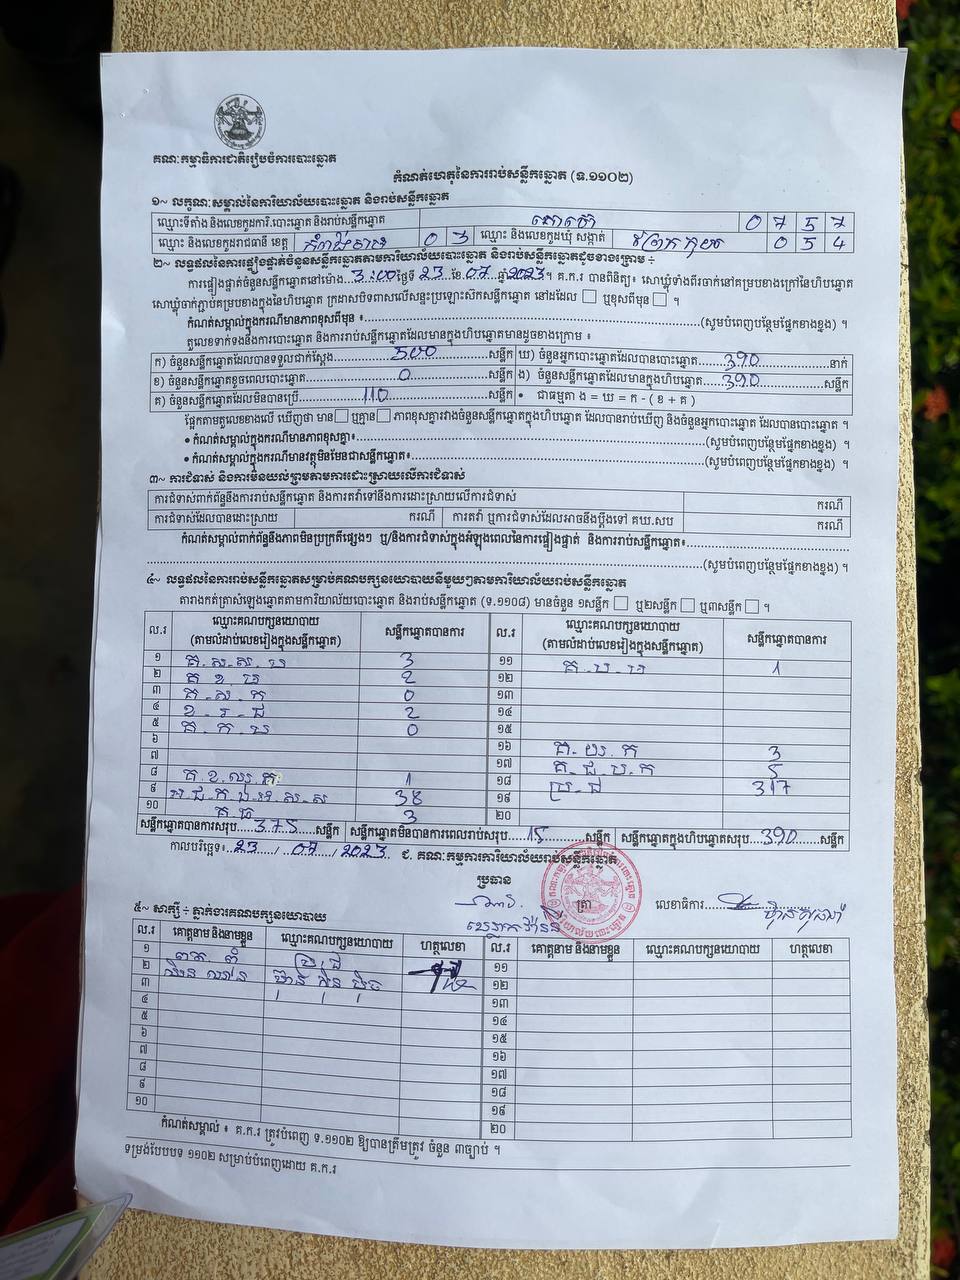 គណៈកម្មាធិការជាតិរៀបចំការបោះឆ្នោត
កំណត់ហេតុនៃការរាប់សន្លឹកឆ្នោត (ទ.១១០២)
១~ លក្ខណៈសម្គាល់នៃការិយាល័យបោះឆ្នោត និងរាប់សន្លឹកឆ្នោត
ឈ្មោះទីតាំង និងលេខកូដការិ.បោះឆ្នោត និងរាប់សន្លឹកឆ្នោត 0 7 5 7
ឈ្មោះ និងលេខកូដរាជធានី ខេត្ត កំពង់ចាម 0 3 ឈ្មោះ និងលេខកូដឃុំ សង្កាត់ 0 5 4
២~ លទ្ធផលនៃការផ្ទៀងផ្ទាត់ចំនួនសន្លឹកឆ្នោតតាមការិយាល័យបោះឆ្នោត និងរាប់សន្លឹកឆ្នោតដូចខាងក្រោម ÷
ការផ្ទៀងផ្ទាត់ចំនួនសន្លឹកឆ្នោតនៅម៉ោង 3:00 ថ្ងៃទី 23 ខែ 07 ឆ្នាំ 2023 ។ គ.ក.រ បានពិនិត្យ៖ សោឃ្មុំទាំងពីរចាក់នៅគម្របខាងក្រៅនៃហិបឆ្នោត
សោឃ្មុំចាក់ភ្ជាប់គម្របខាងក្នុងនៃហិបឆ្នោត ក្រដាសបិទពាសលើសន្ទះប្រឡោះស៊កសន្លឹកឆ្នោត នៅដដែល □ ឬខុសពីមុន □ ។
កំណត់សម្គាល់ក្នុងករណីមានភាពខុសពីមុន ៖ (សូមបំពេញបន្ថែមផ្នែកខាងខ្នង) ។
តួលេខទាក់ទងនឹងការបោះឆ្នោត និងការរាប់សន្លឹកឆ្នោតដែលមានក្នុងហិបឆ្នោតមានដូចខាងក្រោម ៖
ក) ចំនួនសន្លឹកឆ្នោតដែលបានទទួលជាក់ស្តែង 500 សន្លឹក ឃ) ចំនួនអ្នកបោះឆ្នោតដែលបានបោះឆ្នោត 390 នាក់
ខ) ចំនួនសន្លឹកឆ្នោតខូចពេលបោះឆ្នោត 0 សន្លឹក ង) ចំនួនសន្លឹកឆ្នោតដែលមានក្នុងហិបឆ្នោត 390 សន្លឹក
គ) ចំនួនសន្លឹកឆ្នោតដែលមិនបានប្រើ 110 សន្លឹក • ជាធម្មតា ង = ឃ = ក - ( ខ + គ )
ផ្អែកតាមតួលេខខាងលើ ឃើញថា មាន □ ឬគ្មាន □ ភាពខុសគ្នារវាងចំនួនសន្លឹកឆ្នោតក្នុងហិបឆ្នោត ដែលបានរាប់ឃើញ និងចំនួនអ្នកបោះឆ្នោត ដែលបានបោះឆ្នោត ។
• កំណត់សម្គាល់ក្នុងករណីមានភាពខុសគ្នា៖ (សូមបំពេញបន្ថែមផ្នែកខាងខ្នង) ។
• កំណត់សម្គាល់ក្នុងករណីមានវត្ថុមិនមែនជាសន្លឹកឆ្នោត៖ (សូមបំពេញបន្ថែមផ្នែកខាងខ្នង) ។
៣~ ការជំទាស់ និងការមិនយល់ព្រមតាមការដោះស្រាយលើការជំទាស់
ការជំទាស់ពាក់ព័ន្ធនឹងការរាប់សន្លឹកឆ្នោត និងការតវ៉ាទៅនឹងការដោះស្រាយលើការជំទាស់ ករណី
ការជំទាស់ដែលបានដោះស្រាយ ករណី ការតវ៉ា ឬការជំទាស់ដែលអាចនឹងប្តឹងទៅ គឃ.សប ករណី
កំណត់សម្គាល់ពាក់ព័ន្ធនឹងភាពមិនប្រក្រតីផ្សេងៗ ឬ/និងការជំទាស់ក្នុងអំឡុងពេលនៃការផ្ទៀងផ្ទាត់ និងការរាប់សន្លឹកឆ្នោត៖
(សូមបំពេញបន្ថែមផ្នែកខាងខ្នង) ។
៤~ លទ្ធផលនៃការរាប់សន្លឹកឆ្នោតសម្រាប់គណបក្សនយោបាយនីមួយៗតាមការិយាល័យរាប់សន្លឹកឆ្នោត
តារាងកត់ត្រាសំឡេងឆ្នោតតាមការិយាល័យបោះឆ្នោត និងរាប់សន្លឹកឆ្នោត (ទ.១១០៨) មានចំនួន ១សន្លឹក □ ឬ២សន្លឹក □ ឬ៣សន្លឹក □ ។
ល.រ ឈ្មោះគណបក្សនយោបាយ (តាមលំដាប់លេខរៀងក្នុងសន្លឹកឆ្នោត) សន្លឹកឆ្នោតបានការ ល.រ ឈ្មោះគណបក្សនយោបាយ (តាមលំដាប់លេខរៀងក្នុងសន្លឹកឆ្នោត) សន្លឹកឆ្នោតបានការ
១ 3 ១១ 1
២ គ ខ 2 ១២
៣ គ.ស.ក 0 ១៣
៤ ខ.រ.ជ 2 ១៤
៥ គ.ក.ប 0 ១៥
៦ ១៦ 3
៧ ១៧ គ.ជ.ប.ក 5
៨ 1 ១៨ ប្រ.ជ 317
៩ 38 ១៩
១០ 3 ២០
សន្លឹកឆ្នោតបានការសរុប 375 សន្លឹក សន្លឹកឆ្នោតមិនបានការពេលរាប់សរុប 15 សន្លឹក សន្លឹកឆ្នោតក្នុងហិបឆ្នោតសរុប 390 សន្លឹក
កាលបរិច្ឆេទ៖ 23 / 07 / 2023. ជ. គណៈកម្មការការិយាល័យរាប់សន្លឹកឆ្នោត
ប្រធាន
ត្រា លេខាធិការ
៥~ សាក្សី ÷ ភ្នាក់ងារគណបក្សនយោបាយ
ល.រ គោត្តនាម និងនាមខ្លួន ឈ្មោះគណបក្សនយោបាយ ហត្ថលេខា ល.រ គោត្តនាម និងនាមខ្លួន ឈ្មោះគណបក្សនយោបាយ ហត្ថលេខា
១ ប្រ.ជ ១១
២ ១២
៣ ១៣
៤ ១៤
៥ ១៥
៦ ១៦
៧ ១៧
៨ ១៨
៩ ១៩
១០ ២០
កំណត់សម្គាល់ ៖ គ.ក.រ ត្រូវបំពេញ ទ.១១០២ ឱ្យបានត្រឹមត្រូវ ចំនួន ៣ច្បាប់ ។
ទម្រង់បែបបទ ១១០២ សម្រាប់បំពេញដោយ គ.ក.រ